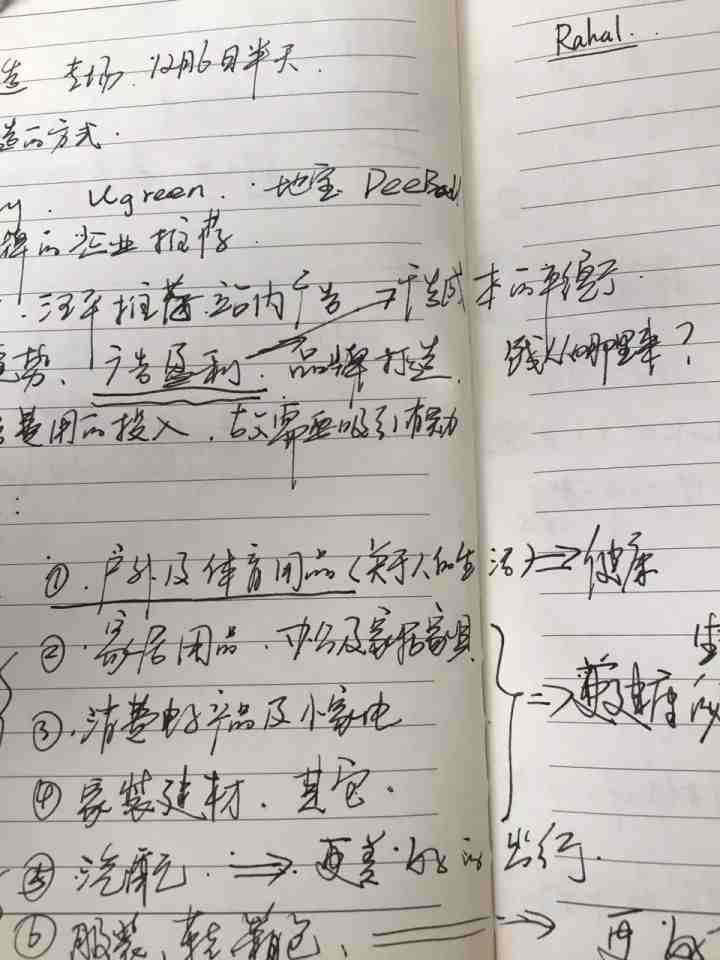 Rahal.
造 专场. 12月6日半天.
造的方式.
Ugreen. 地宝 DeeBot
牌的企业推荐.
推荐.站内广告 → 成本的
势、广告盈利. 品牌打造. 钱从哪里来?
费用的投入,故需要吸引有动
:
①.户外及体育用品(关于人的生活)⇒健康
②.家居用品.办公及家居家具
③.消费电子产品及小家电 ⇒
④家装建材.其它.
⑤汽配 ⇒ 更 的出行.
⑥服装,鞋箱包, ⇒ 更